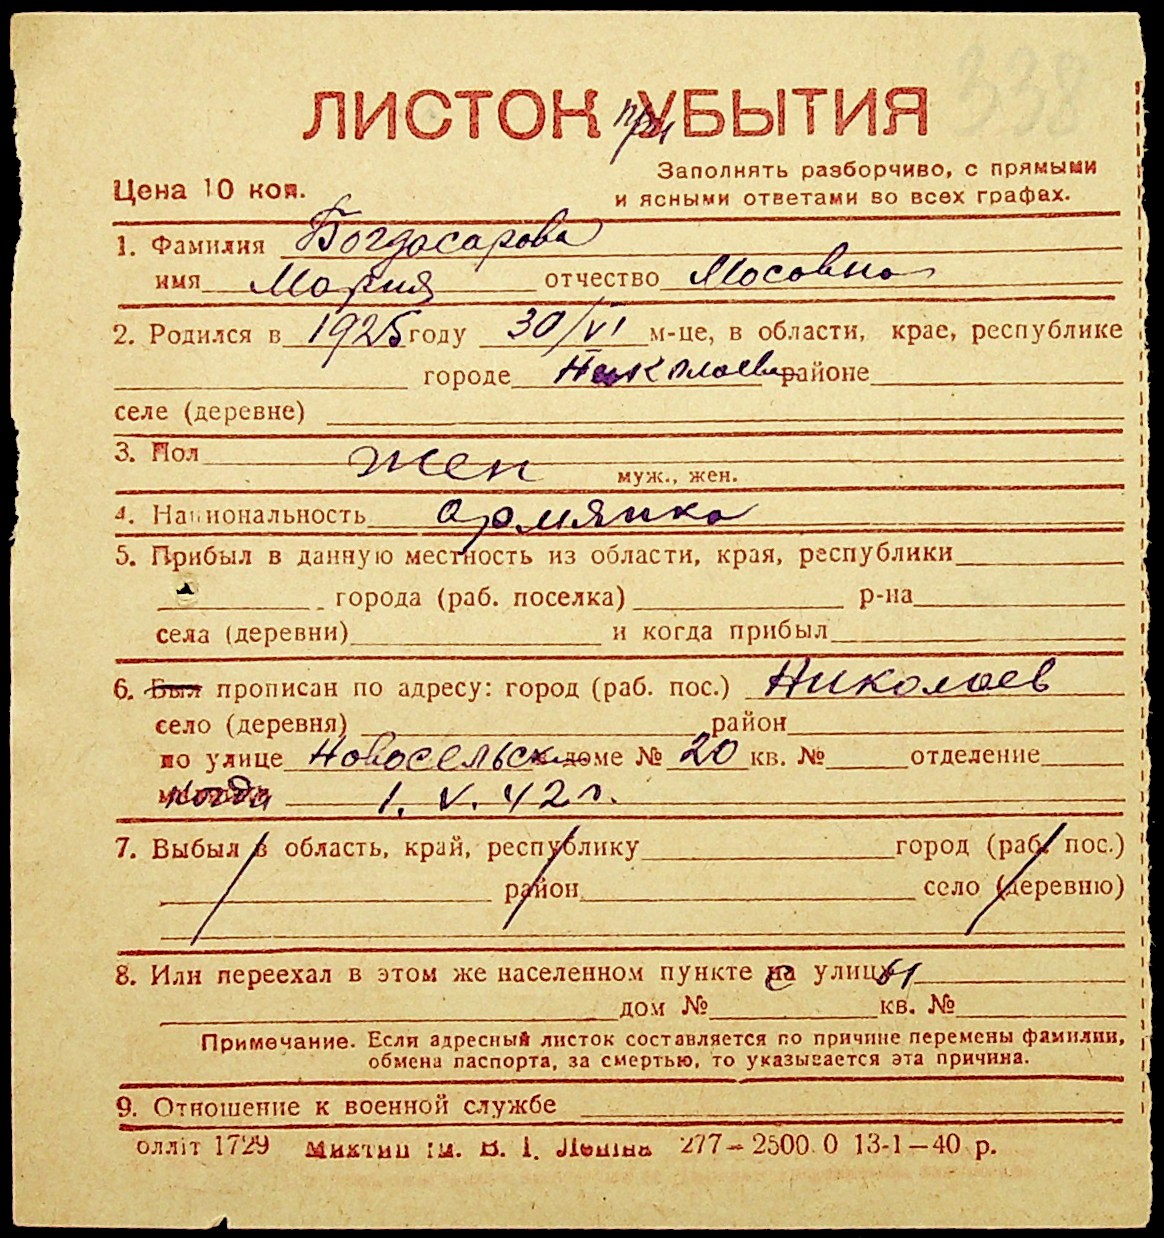 338
ЛИСТОК при УБЫТИЯ
Заполнять разборчиво, с прямыми
Цена 10 коп. и ясными ответами во всех графах.
1. Фамилия Богдасарова
имя Мария отчество Мосовна
2. Родился в 1925 году 30/VI м-це, в области, крае, республике
городе Николаеве районе
селе (деревне)
3. Пол жен муж., жен.
4. Национальность армянка
5. Прибыл в данную местность из области, края, республики
города (раб. поселка) р-на
села (деревни) и когда прибыл
6. Был прописан по адресу: город (раб. пос.) Николаев
село (деревня) район
по улице Новосельск доме № 20 кв. № отделение
когда 1. V. 42 г.
7. Выбыл в область, край, республику город (раб. пос.)
район село (деревню)
8. Или переехал в этом же населенном пункте с улицы
дом № кв. №
Примечание. Если адресный листок составляется по причине перемены фамилии,
обмена паспорта, за смертью, то указывается эта причина.
9. Отношение к военной службе
олліт 1729 Миктип ім. В. І. Леніна 277–2500.0 13-1–40 р.